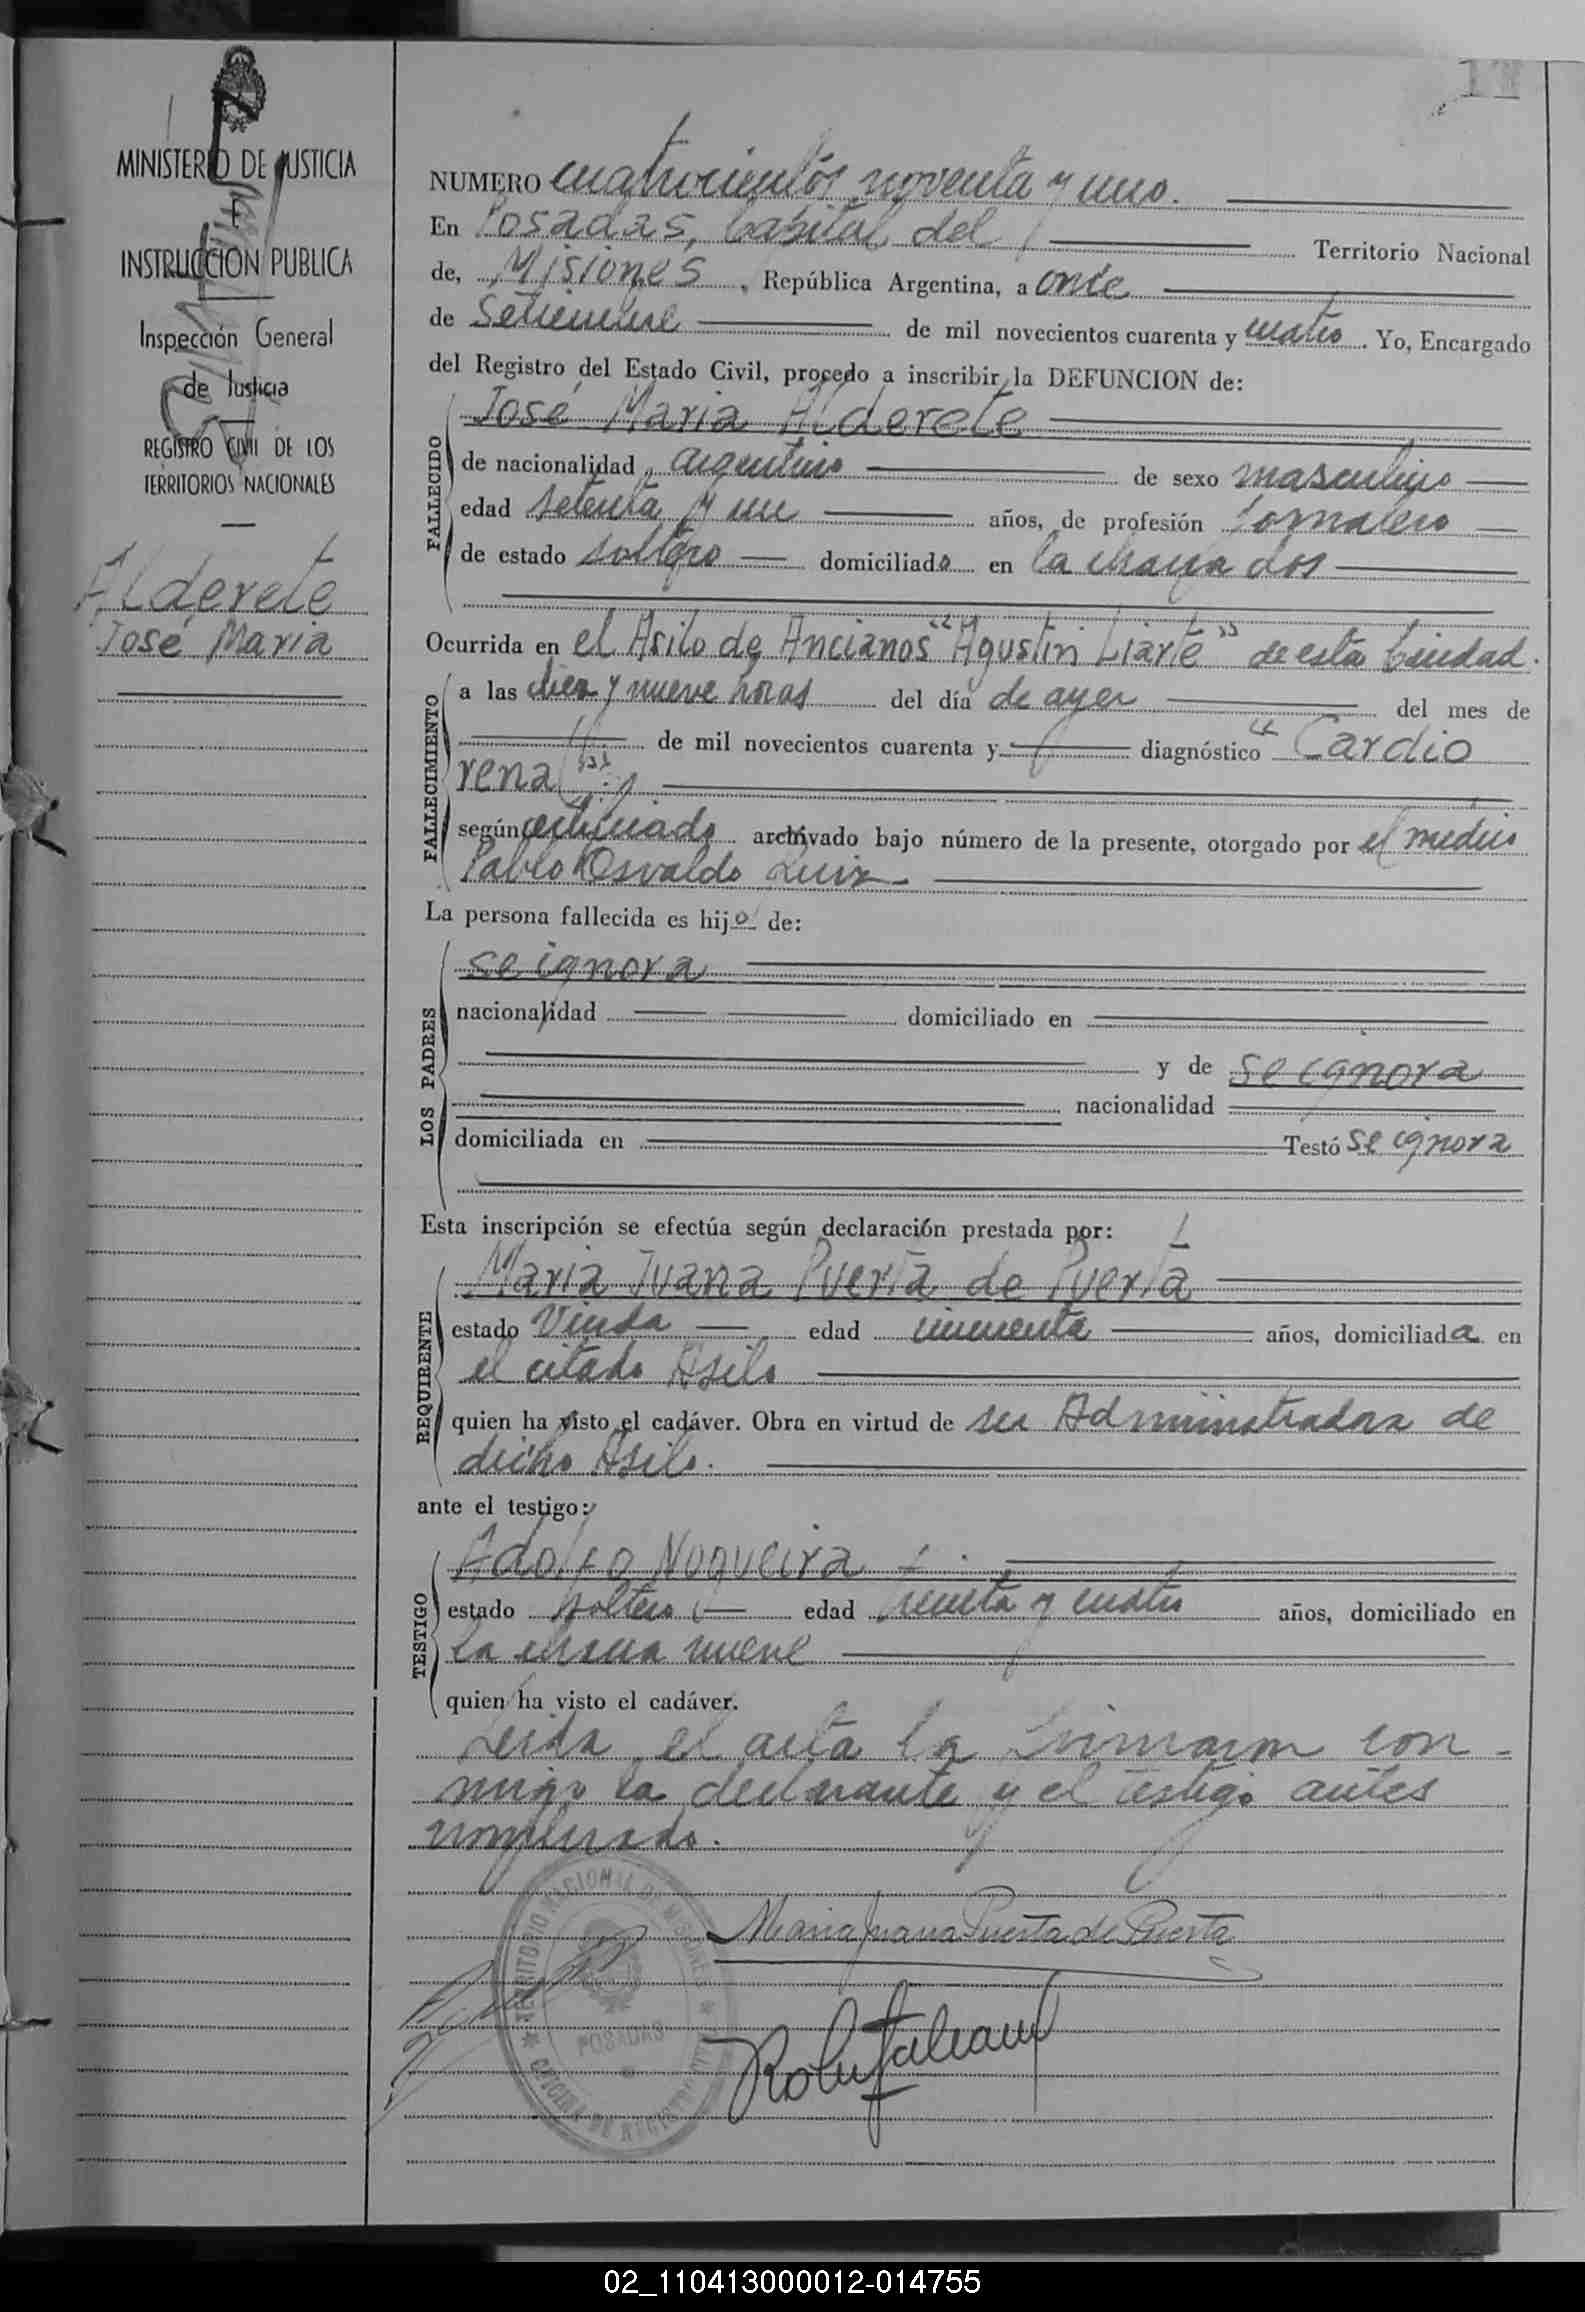 MINISTERIO DE JUSTICIA
E
INSTRUCCION PUBLICA
Inspección General
de Justicia
REGISTRO CIVIL DE LOS
TERRITORIOS NACIONALES
Alderete
José Maria
NUMERO cuatrocientos noventa y uno.
En Posadas, Capital del Territorio Nacional
de, Misiones, República Argentina, a once
de Setiembre de mil novecientos cuarenta y cuatro. Yo, Encargado
del Registro del Estado Civil, procedo a inscribir la DEFUNCION de:
FALLECIDO
José Maria Alderete
de nacionalidad argentino de sexo masculino
edad setenta y un años, de profesión Jornalero
de estado soltero domiciliado en la chacra dos
Ocurrida en el Asilo de Ancianos "Agustin Liarte" de esta Ciudad.
FALLECIMIENTO
a las diez y nueve horas del día de ayer del mes de
de mil novecientos cuarenta y diagnóstico "Cardio
renal"
según certificado archivado bajo número de la presente, otorgado por el médico
Pablo Osvaldo Luiz
La persona fallecida es hijo de:
LOS PADRES
se ignora
nacionalidad domiciliado en
y de se ignora
nacionalidad
domiciliada en Testó se ignora
Esta inscripción se efectúa según declaración prestada por:
REQUIRENTE
Maria Juana Puerta de Puerta
estado Viuda edad cincuenta años, domiciliada en
el citado Asilo
quien ha visto el cadáver. Obra en virtud de ser Administradora de
dicho Asilo.
ante el testigo:
TESTIGO
Adolfo Nogueira
estado soltero edad treinta y cuatro años, domiciliado en
la chacra nueve
quien ha visto el cadáver.
Leida el acta la firmaron con-
migo la declarante y el testigo antes
nombrado.
Maria Juana Puerta de Puerta
TERRITORIO NACIONAL DE MISIONES
POSADAS
OFICINA DE REGISTRO CIVIL
02_110413000012-014755